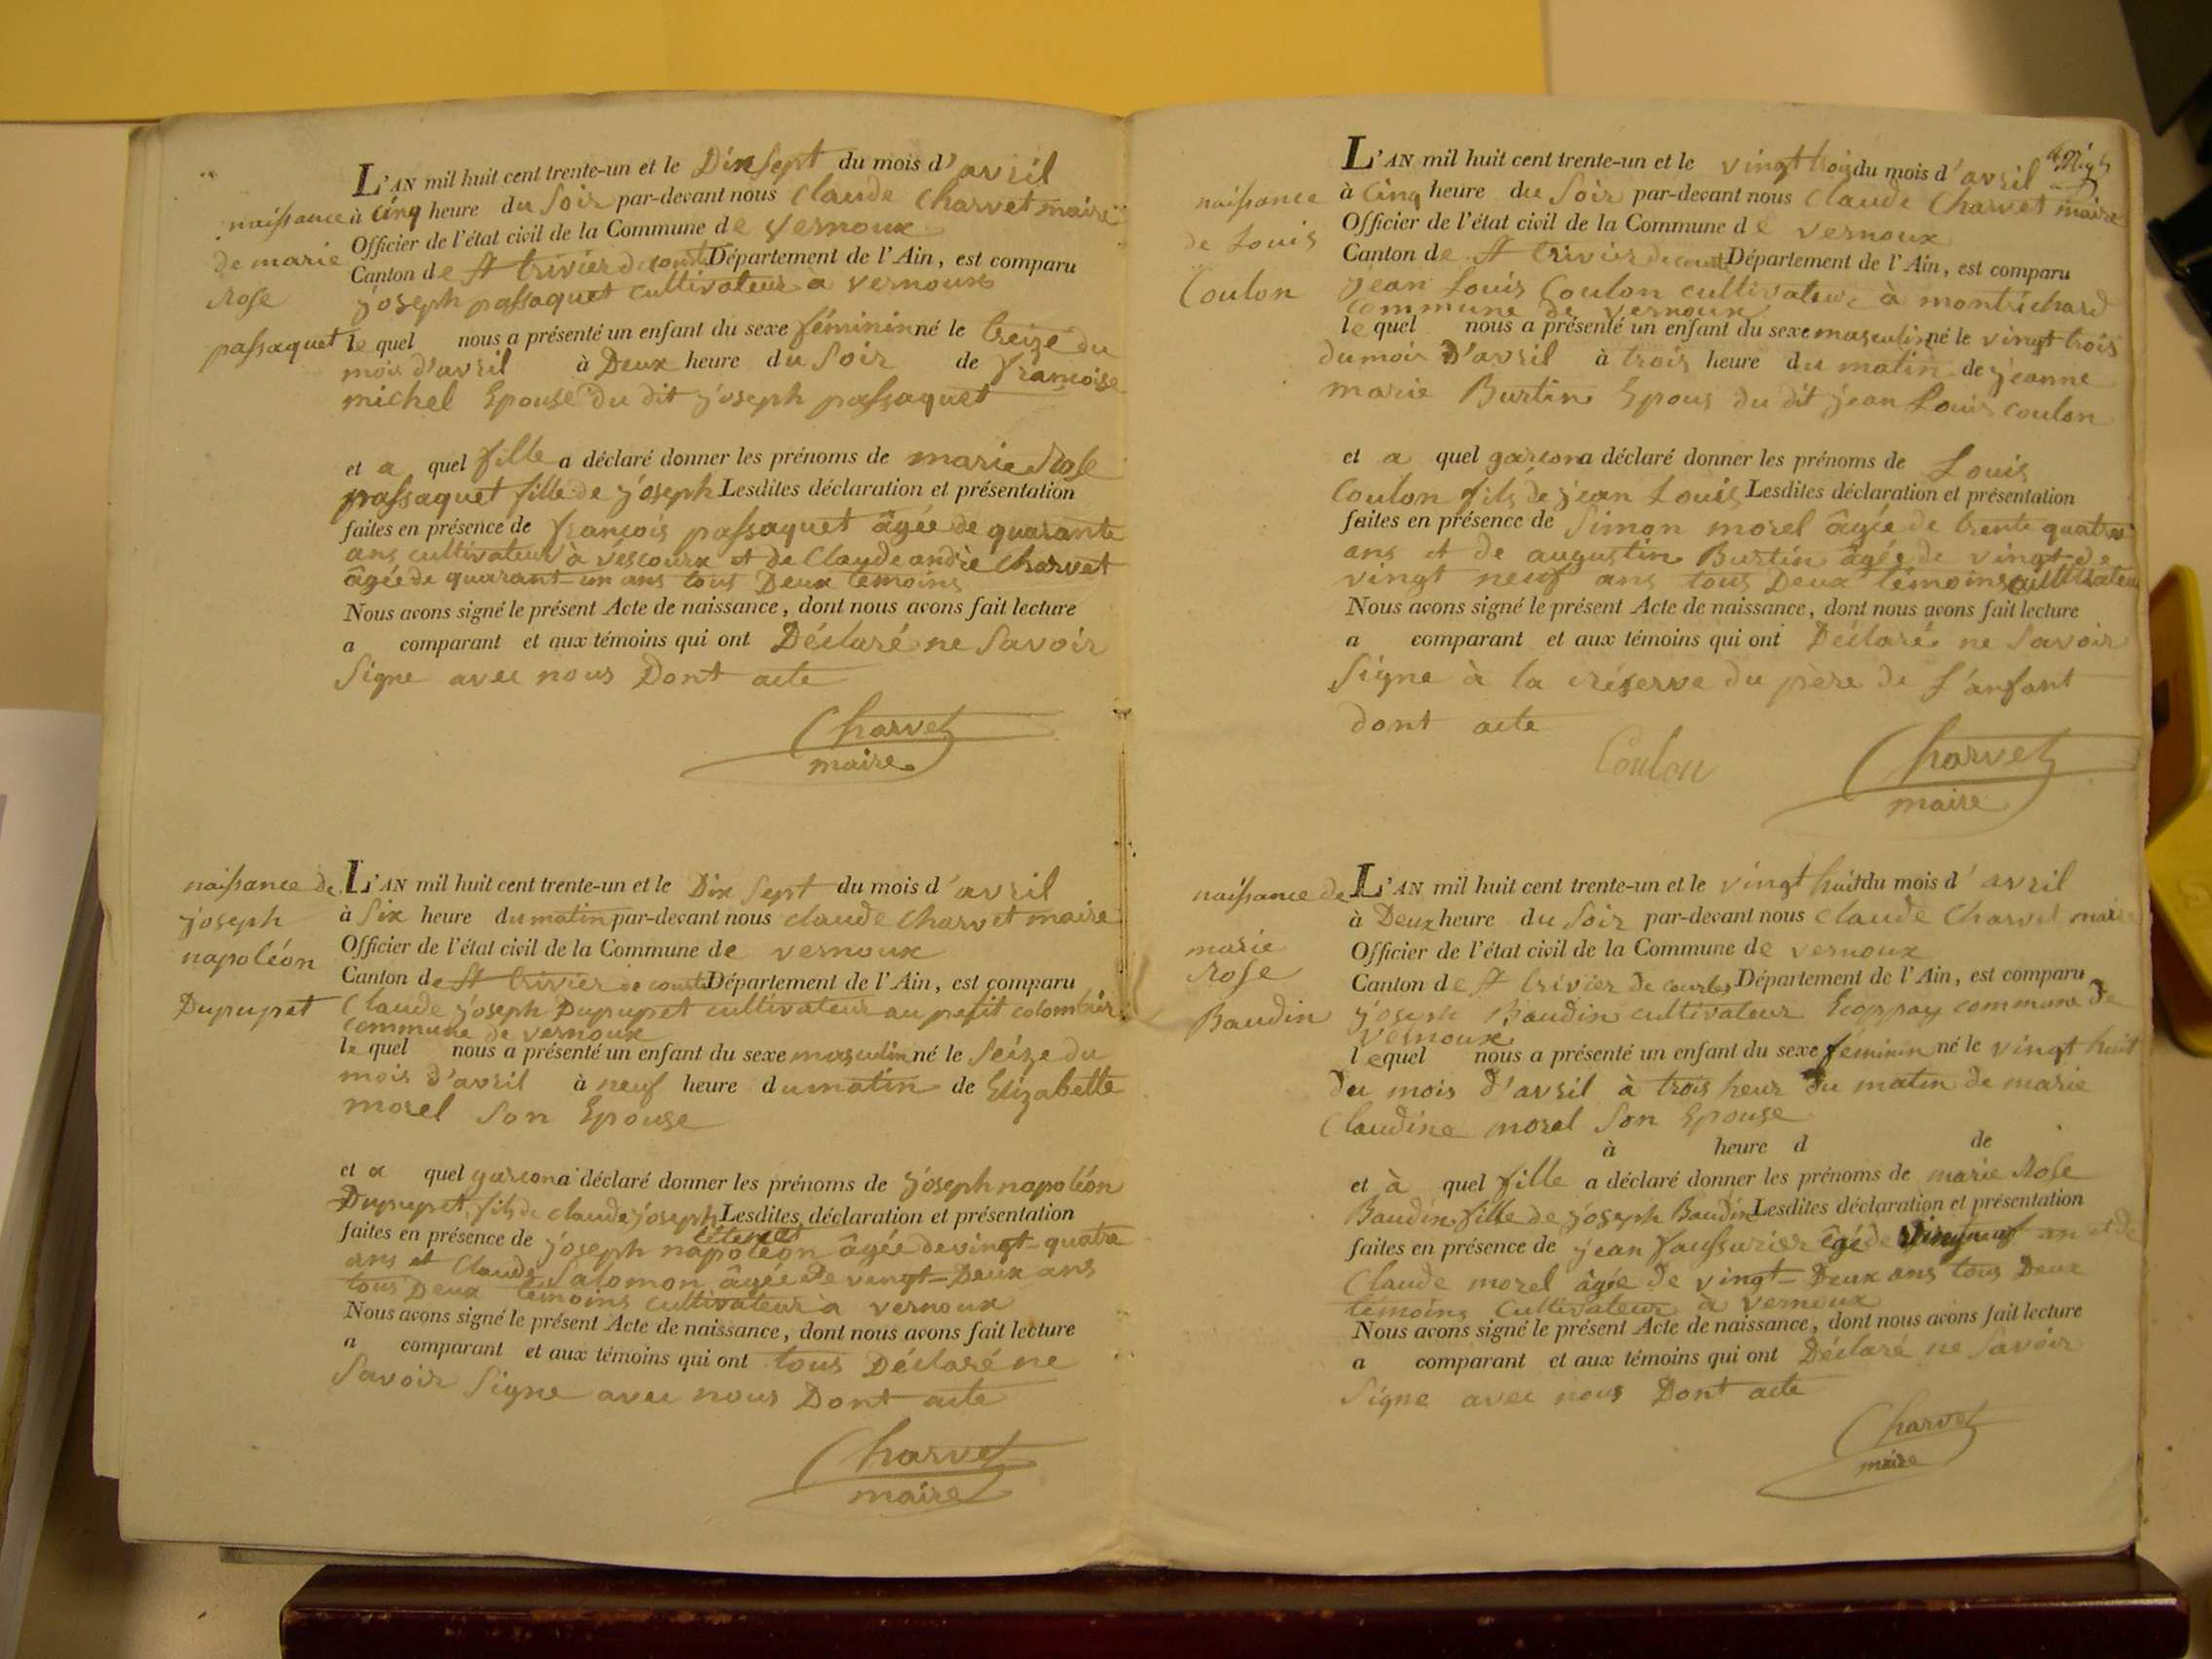 naissance
de marie
Rose
passaquet
L'AN mil huit cent trente-un et le Dix Sept du mois d'avril
à Cinq heure du Soir par-devant nous Claude Charvet maire
Officier de l'état civil de la Commune de Vernoux
Canton de St trivier de courtes Département de l'Ain, est comparu
joseph passaquet cultivateur à vernoux
le quel nous a présenté un enfant du sexe féminin né le treize du
mois d'avril à Deux heure du Soir de françoise
michel Epouse du dit joseph passaquet
et a quel fille a déclaré donner les prénoms de marie Rose
passaquet fille de joseph Lesdites déclaration et présentation
faites en présence de françois passaquet âgée de quarante
ans cultivateur à vescours et de Claude andrè Charvet
âgée de quarant-un ans tous Deux témoins
Nous avons signé le présent Acte de naissance, dont nous avons fait lecture
a comparant et aux témoins qui ont Déclaré ne Savoir
Signe avec nous Dont acte
Charvet
maire
naissance de
joseph
napoléon
Dupupet
L'AN mil huit cent trente-un et le Dix Sept du mois d'avril
à Six heure du matin par-devant nous claude Charvet maire
Officier de l'état civil de la Commune de vernoux
Canton de St trivier de courtes Département de l'Ain, est comparu
Claude joseph Dupupet cultivateur au petit colombier
commune de vernoux
le quel nous a présenté un enfant du sexe masculin né le Seize du
mois d'avril à neuf heure du matin de Elizabette
morel Son Epouse
et a quel garcon a déclaré donner les prénoms de joseph napoléon
Dupupet fils de claude joseph Lesdites déclaration et présentation
faites en présence de joseph napoléon âgée de vingt-quatre
ans et Claude Salomon âgée de vingt-Deux ans
tous Deux témoins cultivateur a vernoux
Nous avons signé le présent Acte de naissance, dont nous avons fait lecture
a comparant et aux témoins qui ont tous Déclaré ne
Savoir Signe avec nous Dont acte
Charvet
maire
naissance
de Louis
Coulon
L'AN mil huit cent trente-un et le vingt trois du mois d'avril
à Cinq heure du Soir par-devant nous Claude Charvet maire
Officier de l'état civil de la Commune de vernoux
Canton de St trivier de courtes Département de l'Ain, est comparu
jean Louis Coulon cultivateur à montrichard
commune de vernoux
le quel nous a présenté un enfant du sexe masculin né le vingt-trois
du mois d'avril à trois heure du matin de jeanne
marie Burtin Epous du dit jean Louis coulon
et a quel garcon a déclaré donner les prénoms de Louis
Coulon fils de jean Louis Lesdites déclaration et présentation
faites en présence de Simon morel âgée de trente quatre
ans et de augustin Burtin âgée de vingt-de
vingt neuf ans tous Deux témoins cultivateur
Nous avons signé le présent Acte de naissance, dont nous avons fait lecture
a comparant et aux témoins qui ont Déclaré ne Savoir
Signe à la réserve du père de l'anfant
dont acte
Coulon
Charvet
maire
naissance de
marie
Rose
Baudin
L'AN mil huit cent trente-un et le vingt huit du mois d'avril
à Deux heure du Soir par-devant nous Claude Charvet maire
Officier de l'état civil de la Commune de vernoux
Canton de St trivier de courtes Département de l'Ain, est comparu
joseph Baudin cultivateur Ecoppay commune de
vernoux
lequel nous a présenté un enfant du sexe feminin né le vingt huit
du mois d'avril à trois heur du matin de marie
Claudine morel Son Epouse
à heure d de
et à quel fille a déclaré donner les prénoms de marie Rose
Baudin fille de joseph Baudin Lesdites déclaration et présentation
faites en présence de jean faussurier âgé de vingtneuf an et de
Claude morel âgée de vingt-Deux ans tous Deux
témoins Cultivateur a vernoux
Nous avons signé le présent Acte de naissance, dont nous avons fait lecture
a comparant et aux témoins qui ont Déclaré ne Savoir
Signe avec nous Dont acte
Charvet
maire